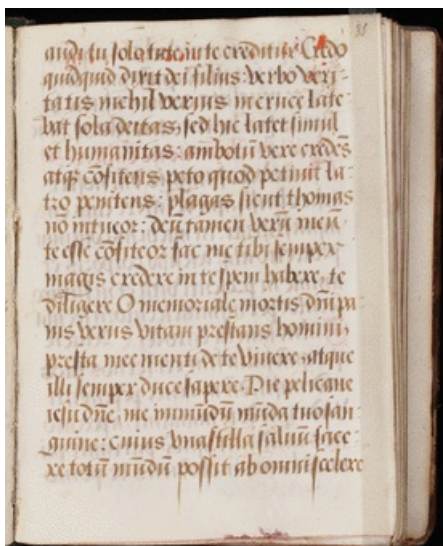 audi tu sola tute in te creditur Credo
quidquid dixit dei filius: verbo veri-
tatis nichil verius in cruce late
bat sola deitas, sed hic latet simul
et humanitas: ambo tn̄ vere credēs
atqꝫ cōfitens peto quod petiuit la-
tro penitens: plagas sicut thomas
nō intueor: deū tamen verū meū
te esse cōfiteor fac me tibi semper
magis credere in te spem habere, te
diligere O memoriale mortis dn̄i pa
nis verus vitam prestans homini,
presta mee menti de te viuere, atque
illi semper duce sapere. Pie pelicane
iesu dn̄e, me immūdū mūda tuo san
guine: cuius vna stilla saluū face
re totū mūdū possit ab omni scelere